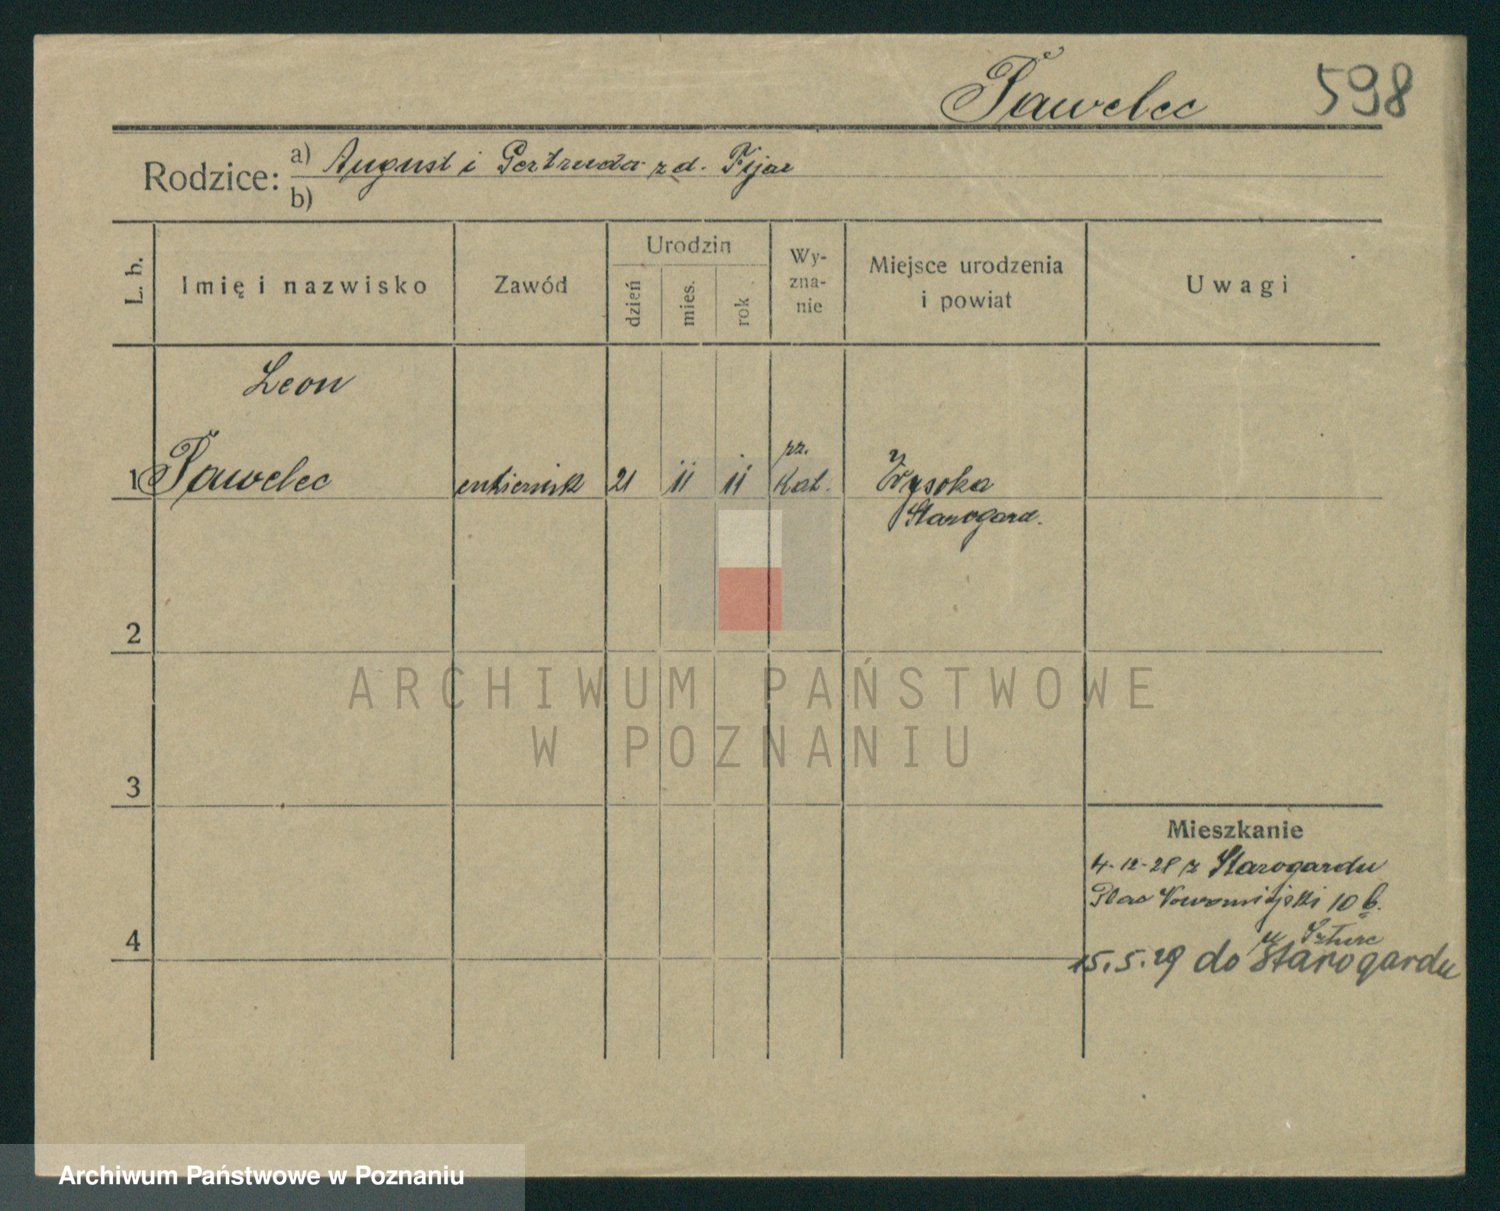 Pawelec 598
Rodzice: a) August i Gertruda z d. Fijał
b)
L. b. Imię i nazwisko Zawód Urodzin dzień mies. rok Wy-zna-nie Miejsce urodzenia i powiat Uwagi
Leon
1 Pawelec cukiernik 21 11 11 rz. Kat. Wysoka
Starogard.
2
ARCHIWUM PAŃSTWOWE
W POZNANIU
3
Mieszkanie
4-12-28 z Starogardu
Plac Nowomiejski 10 b.
u Szturc
4
15.5.29 do Starogardu
Archiwum Państwowe w Poznaniu